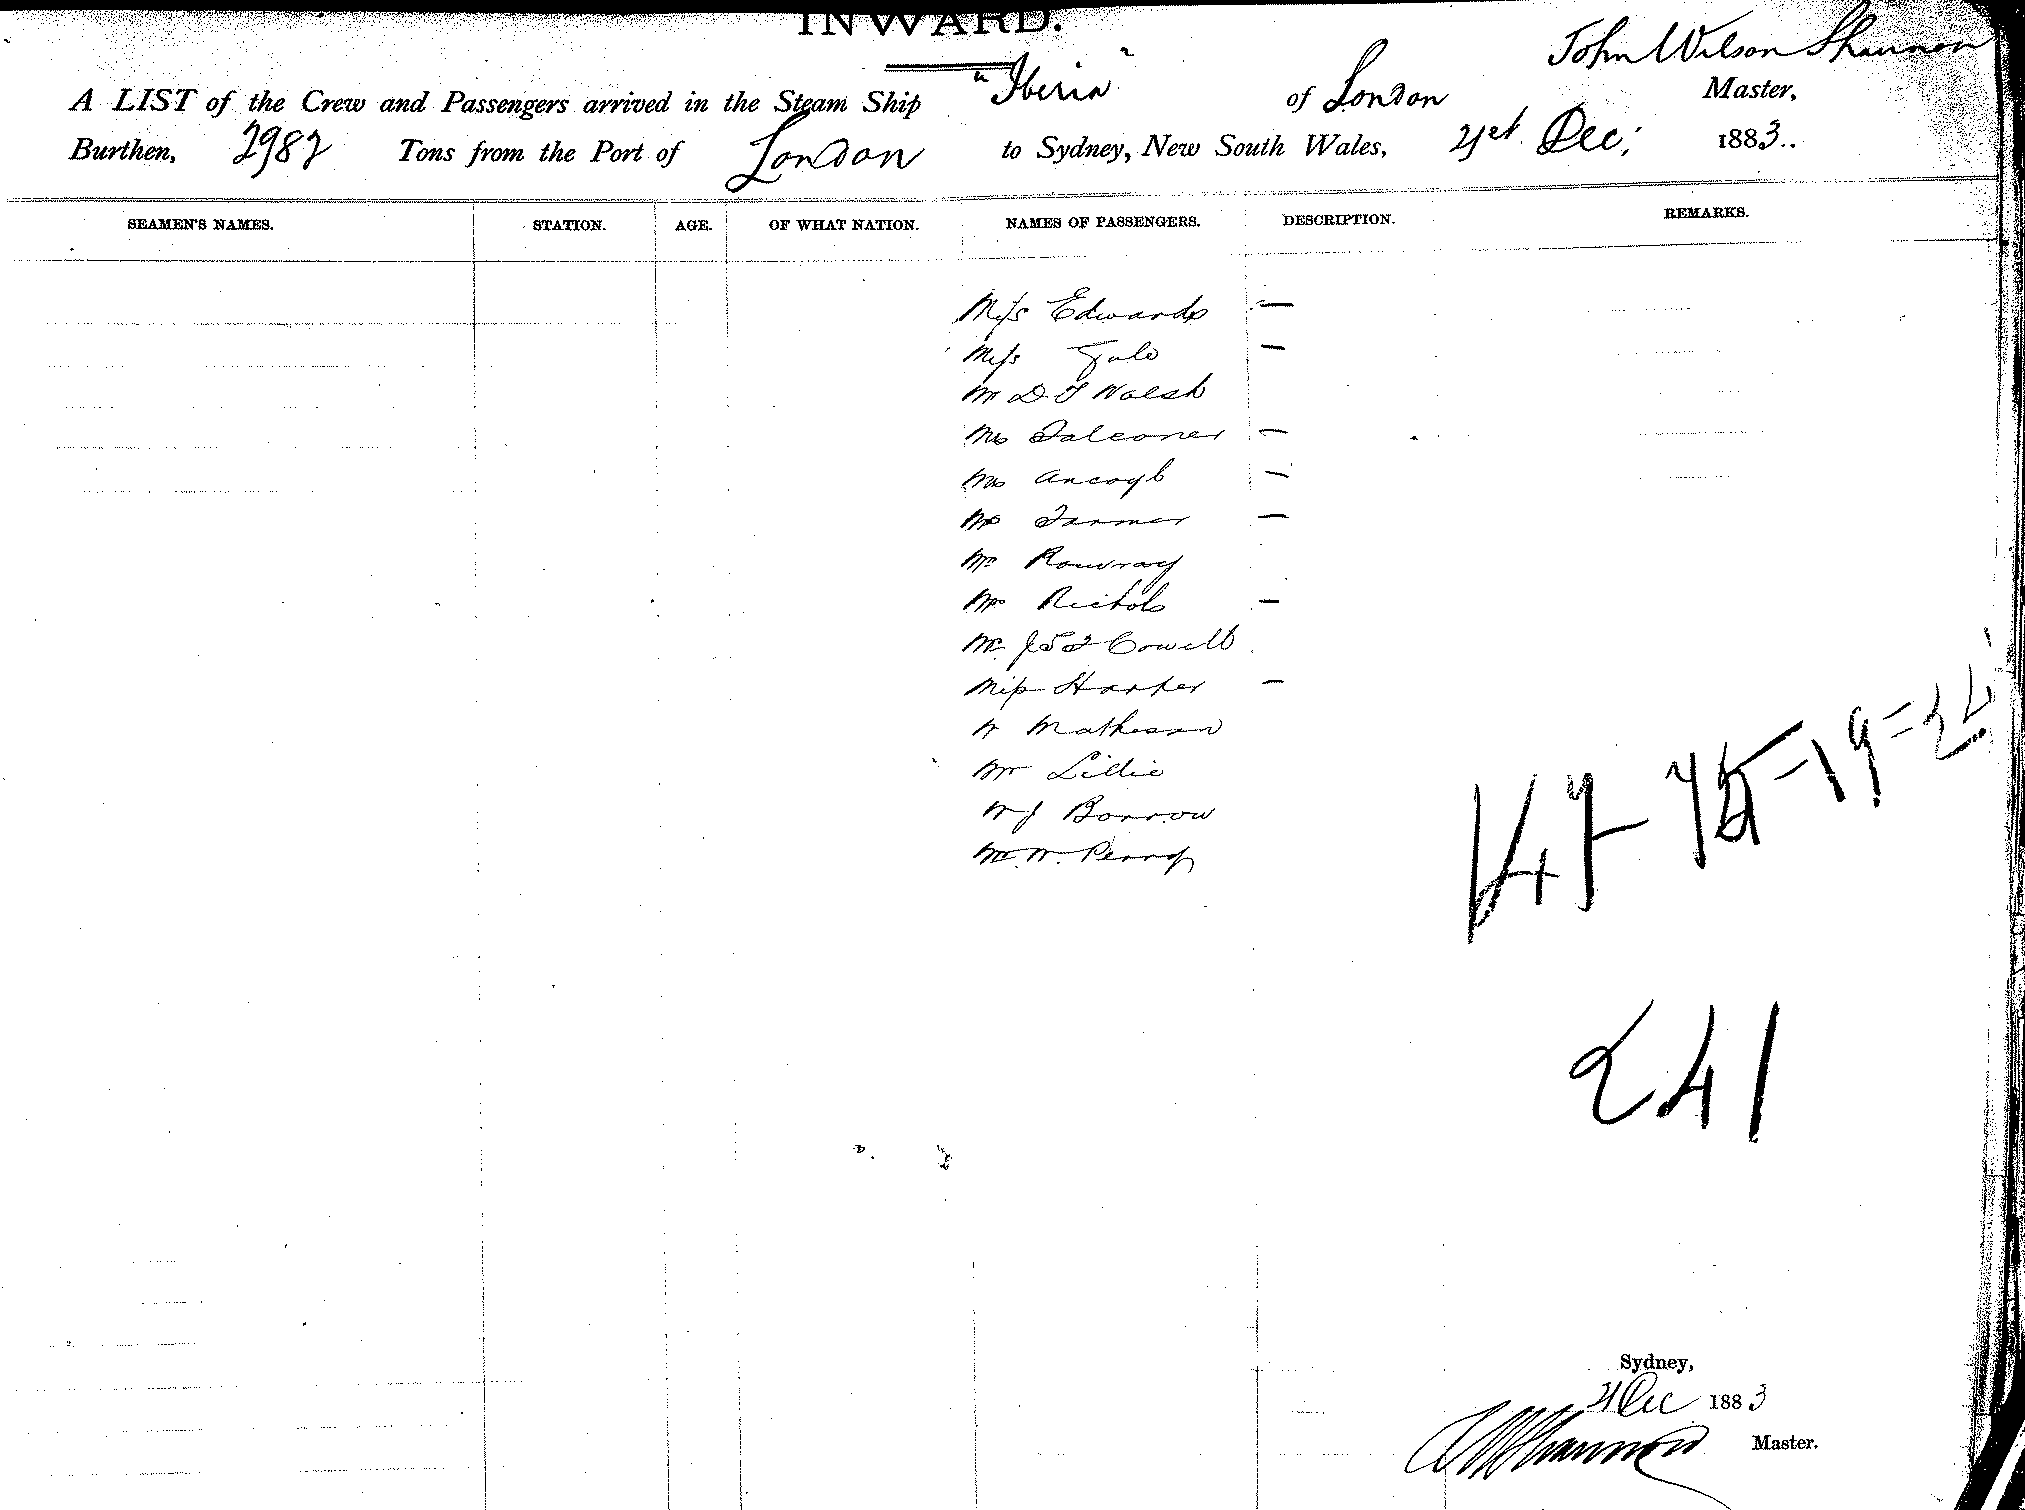 INWARD.
John Wilson Shannon
A LIST of the Crew and Passengers arrived in the Steam Ship "Iberia" of London Master,
Burthen, 2982 Tons from the Port of London to Sydney, New South Wales, 21st Dec; 1883.
SEAMEN'S NAMES. STATION. AGE. OF WHAT NATION. NAMES OF PASSENGERS. DESCRIPTION. REMARKS.
Miss Edwards —
Miss —
Mr D Walsh
Mrs Falconer —
Mrs —
Mrs Farmer —
Mr Rouvray
Mrs —
Mr Cowell
Miss Harper —
Matheson
Mr Lillie
Borrow
Mr W. Perry
241
Sydney,
21 Dec 1883
Shannon Master.